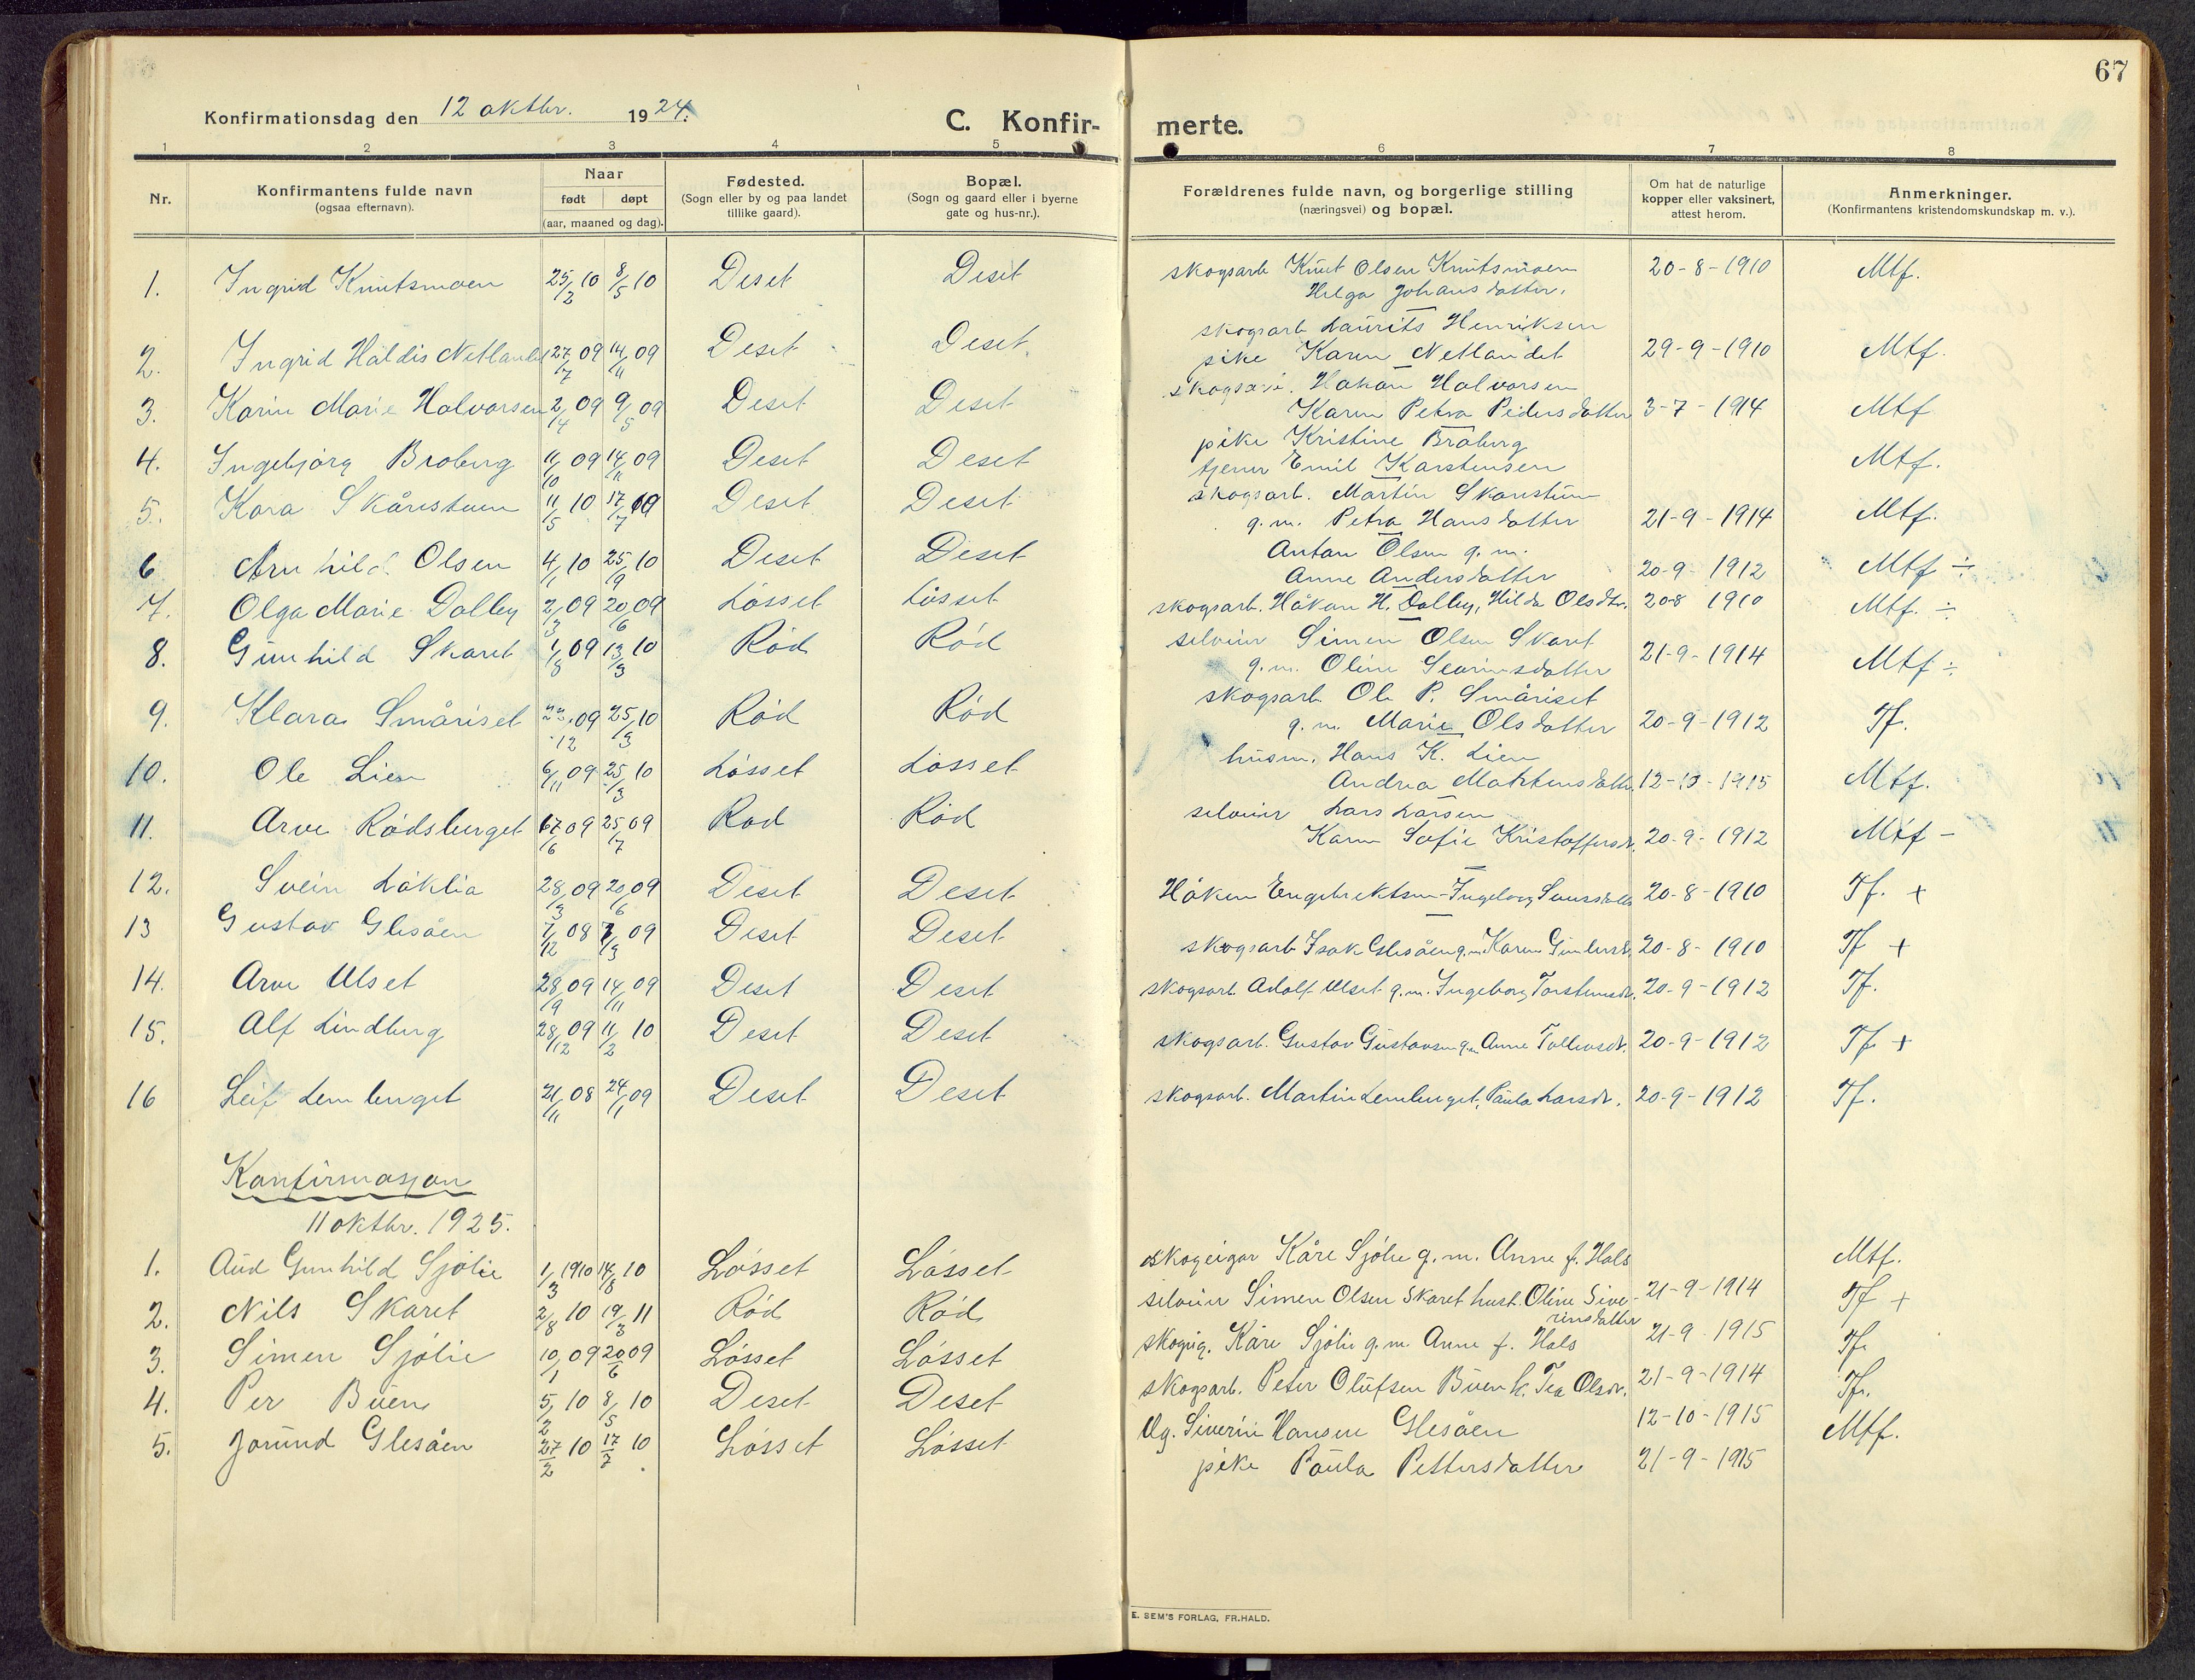 67
Konfirmationsdag den 12 oktbr. 1924.
C. Konfir- merte.
1 2 3 4 5 6 7 8
Nr.
Konfirmantens fulde navn
(ogsaa efternavn).
Naar
født døpt
(aar, maaned og dag).
Fødested.
(Sogn eller by og paa landet
tillike gaard).
Bopæl.
(Sogn og gaard eller i byerne
gate og hus-nr.).
Forældrenes fulde navn, og borgerlige stilling
(næringsvei) og bopæl.
Om hat de naturlige
kopper eller vaksinert,
attest herom.
Anmerkninger.
(Konfirmantens kristendomskundskap m. v.).
1. Ingrid Knutsmoen 25/2 10 8/5 10 Deset Deset skogsarb Knut Olsen Knutsmoen 20-8-1910 Mtf.
Helga Johansdatter.
skogsarb Laurits Henriksen
2. Ingrid Haldis Netlandet 27/7 09 14/11 09 Deset Deset pike Karen Netlandet 29-9-1910 Mtf.
skogsarb. Håkon Halvorsen
3. Karin Marie Halvorsen 2/4 09 9/5 09 Deset Deset Karen Petra Pedersdatter 3-7-1914 Mtf
pike Kristine Broberg
4. Ingebjørg Broberg 11/10 09 14/11 09 Deset Deset tjener Emil Karstensen Mtf.
skogsarb. Martin Skårstuen
5. Kara Skårstuen 11/5 10 17/7 10 Deset Deset g.m. Petra Hansdatter 21-9-1914 Mtf.
Anton Olsen g.m.
6 Arnhild Olsen 4/1 10 25/9 10 Deset Deset Anne Andersdatter 20-9-1912 Mtf ÷
7. Olga Marie Dalby 2/3 09 20/6 09 Løsset Løsset skogsarb. Håkon H. Dalby, Hilda Olsdtr. 20-8 1910 Mtf. ÷
8. Gunhild Skaret 1/8 09 13/3 10 Rød Rød selveier Simen Olsen Skaret 21-9-1914 Mtf ÷
g.m. Oline Severinsdatter
skogsarb Ole P. Småriset
9. Klara Småriset 22/12 09 25/3 10 Rød Rød g.m. Marie Olsdatter 20-9-1912 Tf.
husm. Hans K. Lien
10. Ole Lien 6/11 09 25/3 10 Løsset Løsset Andrea Mortensdatter 12-10-1915 Mtf.
selveier Lars Larsen
11. Arve Rødsberget 17/6 09 25/7 09 Rød Rød Karen Sofie Kristoffersdr. 20-9-1912 Mtf -
12. Svein Løklia 28/3 09 20/6 09 Deset Deset Håken Engebrektsen - Ingeborg 20-8-1910 Tf. +
13 Gustav Glesåen 7/12 08 7/3 09 Deset Deset skogsarb Isak Glesåen g.m. Karen 20-8-1910 Tf +
14. Arve Ulset 28/9 09 14/11 09 Deset Deset skogsarb Adolf Ulset g.m. Ingeborg Torstensdr. 20-9-1912 Tf.
15. Alf Lindberg 28/12 09 11/2 10 Deset Deset skogsarb. Gustav Gustavsen g.m. Anne Tollevsdr. 20-9-1912 Tf +
16 Leif Lemberget 21/11 08 24/1 09 Deset Deset skogsarb. Martin Lemberget, Paula Larsdr. 20-9-1912 Tf.
Konfirmasjon
11 oktbr. 1925.
1. Aud Gunhild Sjølie 1/3 1910 14/8 10 Løsset Løsset skogeigar Kåre Sjølie g.m. Anne f. Hals Mtf.
2. Nils Skaret 2/8 10 19/3 11 Rød Rød selveier Simen Olsen Skaret hust. Oline Sive- 21-9-1914 Tf +
rinsdatter
3. Simen Sjølie 10/1 09 20/6 09 Løsset Løsset skogeig. Kåre Sjølie g.m. Anne f. Hals 21-9-1915 Tf.
4. Per Buen 5/2 10 8/5 10 Deset Deset skogsarb. Peter Olufsen Buen h. Tea Olsdr. 21-9-1914 Tf.
5. Jorund Glesåen 27/2 10 17/7 10 Løsset Løsset Ug. Siverin Hansen Glesåen 12-10-1915 Mtf.
pike Paula Pettersdatter 21-9-1915
E. SEM'S FORLAG, FR.HALD.